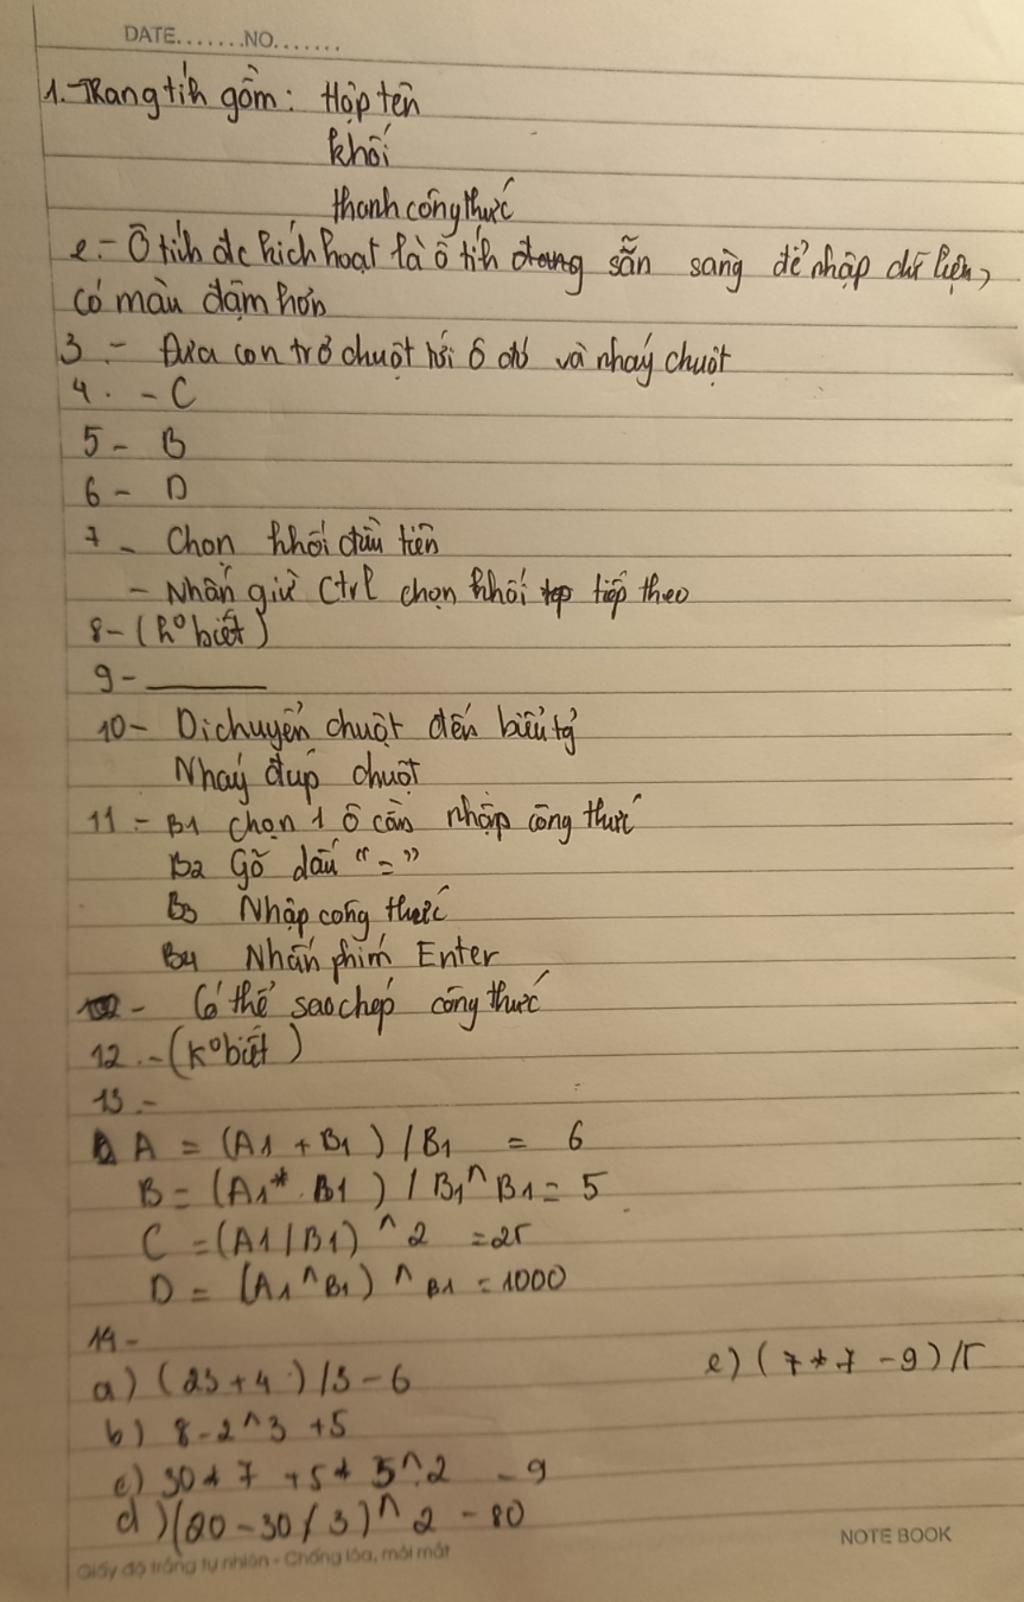 DATE.......NO.......
1. Trang tính gồm: Hộp tên
khối
thanh công thức
2.- Ô tính đc kích hoạt là ô tính đang sẵn sàng để nhập dữ liệu,
có màu đậm hơn
3.- Đưa con trỏ chuột tới ô đó và nháy chuột
4. - C
5 - B
6 - D
7 - Chọn khối đầu tiên
- Nhấn giữ Ctrl chọn khối tiếp theo
8 - (k° biết)
9 -
10 - Di chuyển chuột đến biểu tg
Nháy đúp chuột
11 - B1 chọn 1 ô cần nhập công thức
B2 Gõ dấu "="
B3 Nhập công thức
B4 Nhấn phím Enter
- Có thể sao chép công thức
12.- (k° biết)
13.-
A = (A1 + B1) / B1 = 6
B = (A1* B1) / B1^B1 = 5
C = (A1/B1)^2 = 25
D = (A1^B1)^B1 = 1000
14 -
a) (23+4)/3-6
e) (7*7-9)/5
b) 8-2^3+5
c) 30*7+5*5^2-9
d) (20-30/3)^2-80
NOTE BOOK
Giấy độ trắng tự nhiên - Chống lóa, mỏi mắt